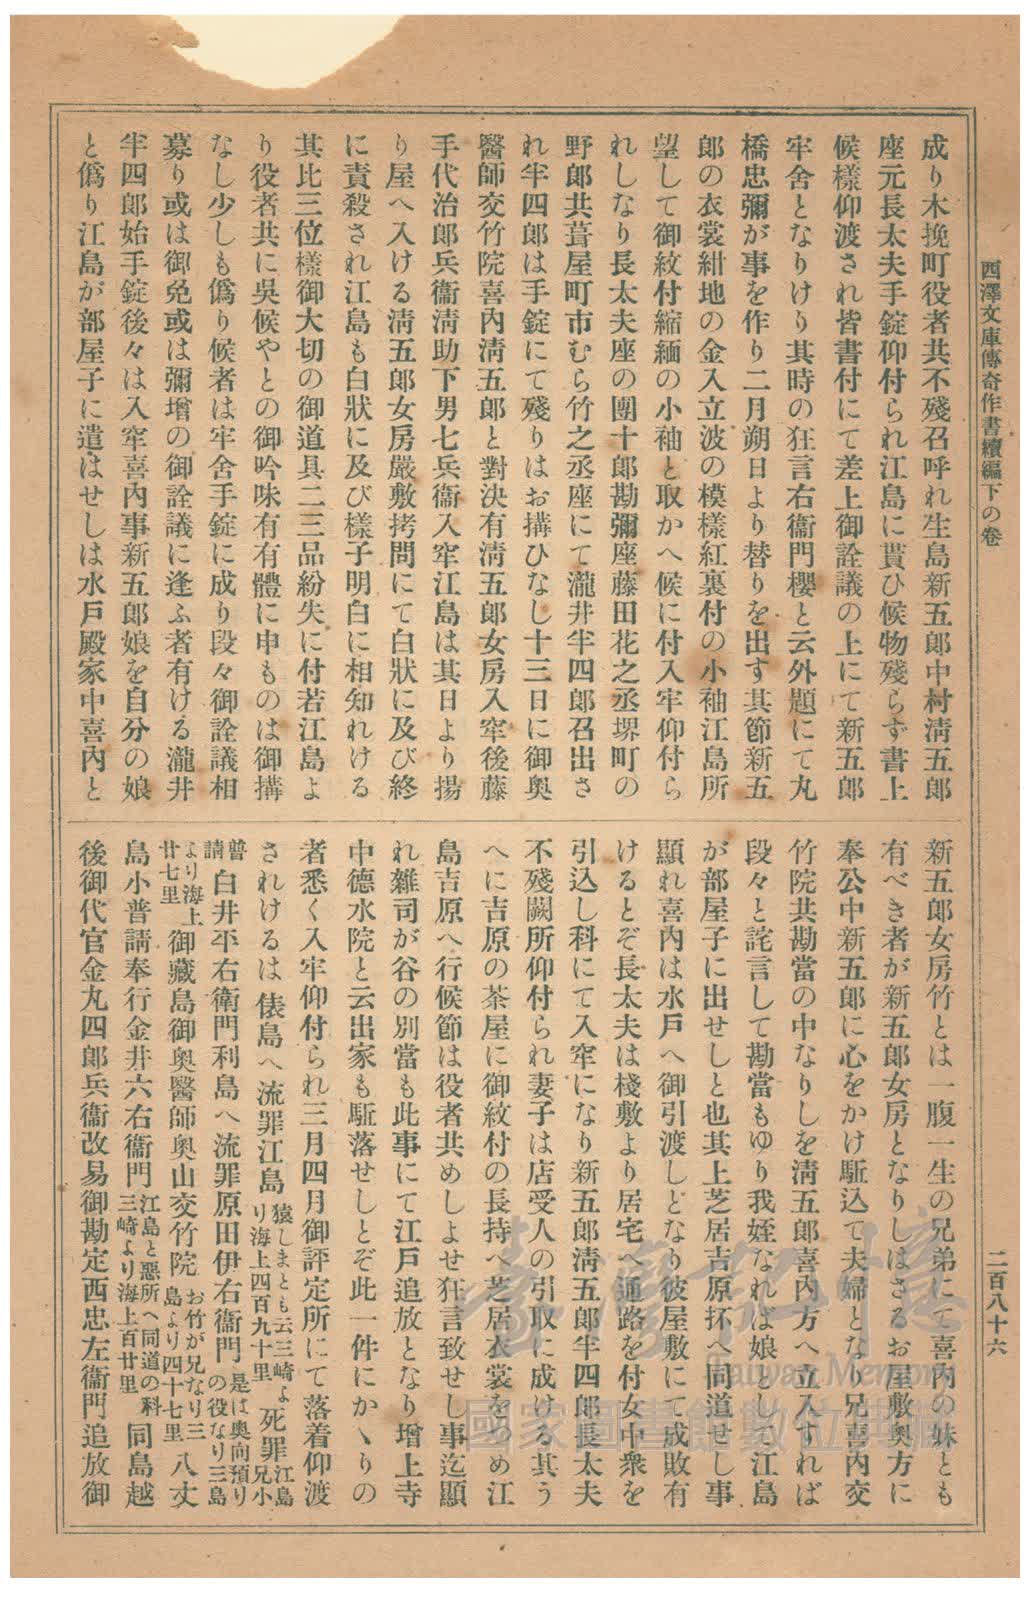 西澤文庫傳奇作書續編下の卷
二百八十六
成り木挽町役者共不殘召呼れ生島新五郎中村淸五郎
座元長太夫手錠仰付られ江島に貰ひ候物殘らず書上
候樣仰渡され皆書付にて差上御詮議の上にて新五郎
牢舍となりけり其時の狂言右衞門櫻と云外題にて丸
橋忠彌が事を作り二月朔日より替りを出す其節新五
郎の衣裳紺地の金入立波の模樣紅裏付の小袖江島所
望して御紋付縮緬の小袖と取かへ候に付入牢仰付ら
れしなり長太夫座の團十郎勘彌座藤田花之丞堺町の
野郎共葺屋町市むら竹之丞座にて瀧井半四郎召出さ
れ半四郎は手錠にて殘りはお搆ひなし十三日に御奥
醫師交竹院喜內淸五郎と對決有淸五郎女房入牢後藤
手代治郎兵衞淸助下男七兵衞入牢江島は其日より揚
り屋へ入ける淸五郎女房嚴敷拷問にて白狀に及び終
に責殺され江島も白狀に及び樣子明白に相知れける
其比三位樣御大切の御道具二三品紛失に付若江島よ
り役者共に吳候やとの御吟味有有體に申ものは御搆
なし少しも僞り候者は牢舍手錠に成り段々御詮議相
募り或は御免或は彌增の御詮議に逢ふ者有ける瀧井
半四郎始手錠後々は入牢喜內事新五郎娘を自分の娘
と僞り江島が部屋子に遣はせしは水戶殿家中喜內と
新五郎女房竹とは一腹一生の兄弟にて喜內の妹とも
有べき者が新五郎女房となりしはさるお屋敷奥方に
奉公中新五郎に心をかけ駈込て夫婦となり兄喜內交
竹院共勘當の中なりしを淸五郎喜內方へ立入すれば
段々と詫言して勘當もゆり我姪なれば娘として江島
が部屋子に出せしと也其上芝居吉原抔へ同道せし事
顯れ喜內は水戶へ御引渡しとなり彼屋敷にて成敗有
けるとぞ長太夫は棧敷より居宅へ通路を付女中衆を
引込し科にて入牢になり新五郎淸五郎半四郎長太夫
不殘闕所仰付られ妻子は店受人の引取に成ける其う
へに吉原の茶屋に御紋付の長持へ芝居衣裳をつめ江
島吉原へ行候節は役者共めしよせ狂言致せし事迄顯
れ雜司が谷の別當も此事にて江戶追放となり增上寺
中德水院と云出家も駈落せしとぞ此一件にかゝりの
者悉く入牢仰付られ三月四月御評定所にて落着仰渡
されけるは俵島へ流罪江島猿しまとも云三崎より海上四百九十里死罪江島兄小
普請白井平右衞門利島へ流罪原田伊右衞門是は奥向預りの役なり三島
より海上廿七里御藏島御奥醫師奥山交竹院お竹が兄なり三島より四十七里八丈
島小普請奉行金井六右衞門江島と惡所へ同道の科三崎より海上百廿里同島越
後御代官金丸四郎兵衞改易御勘定西忠左衞門追放御
臺灣記憶
Taiwan Memory
國家圖書館數位典藏